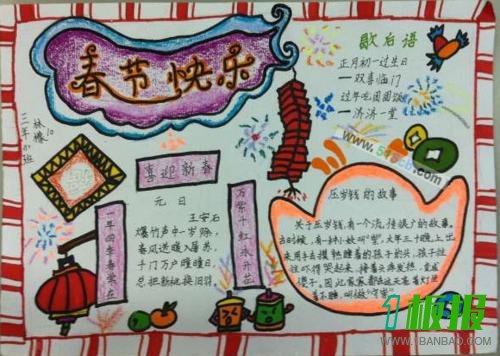 春节快乐
歇后语
正月初一过生日
一双喜临门
过年吃团圆饭
一济济一堂
喜迎新春
元日
王安石
爆竹声中一岁除，
春风送暖入屠苏，
千门万户曈曈日，
总把新桃换旧符。
一年四季春常在
万紫千红永开花
压岁钱的故事
关于压岁钱，有一个流传很广的故事，
古时候，有一种小妖叫"祟"，大年三十晚上出
来用手去摸熟睡着的孩子的头，孩子往
往吓得哭起来，接着头疼发热，变成
傻子，因此，家家都在这天亮着灯坐
着不睡，叫做"守祟"。
1板报
WWW.1BANBAO.COM